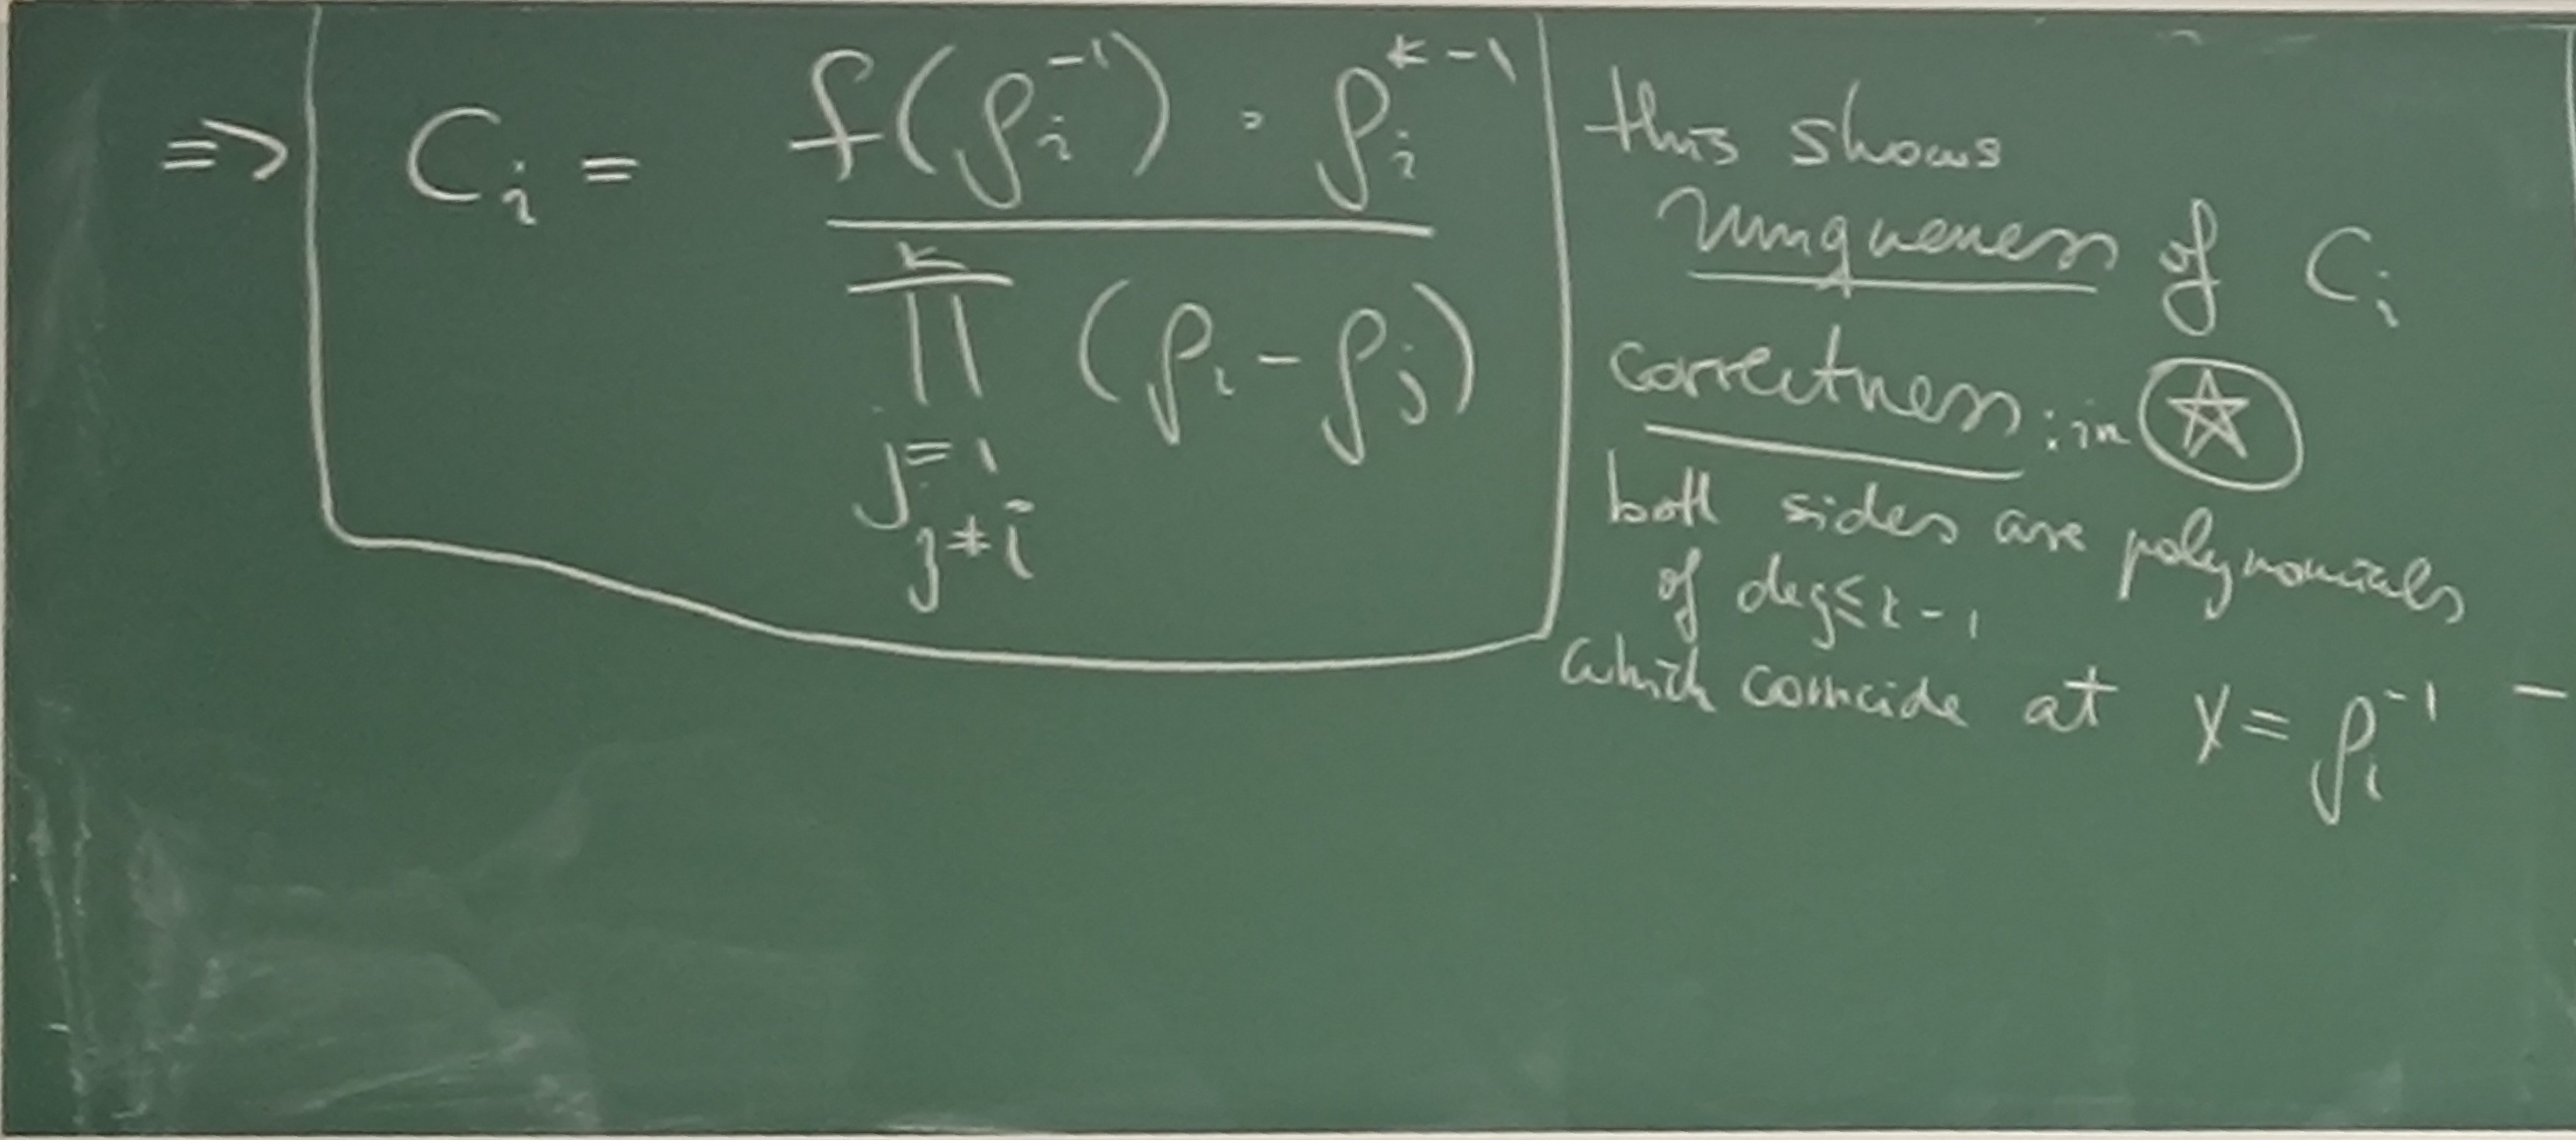 => C_i = f(ρ_i^{-1}) · ρ_i^{k-1}
k
∏ (ρ_i - ρ_j)
j=1
j≠i
this shows
uniqueness of C_i
correctness: in ☆
both sides are polynomials
of deg ≤ k-1
which coincide at x = ρ_i^{-1} -